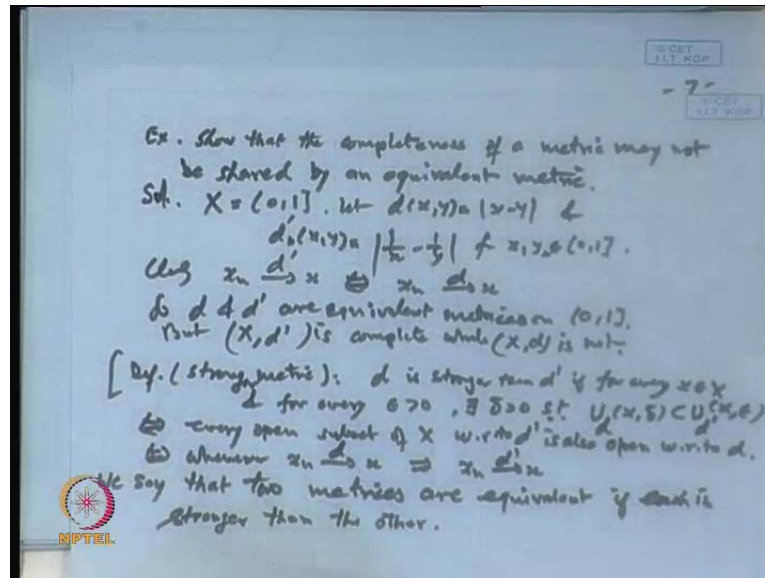 © CET
I.I.T. KGP
- 7 -
© CET
I.I.T. KGP
Ex. Show that the completeness of a metric may not
be shared by an equivalent metric.
Sol. X = (0,1]. Let d(x,y) = |x-y| &
d'(x,y) = |1/x - 1/y| f x,y ∈ (0,1].
Clearly xn →d' x ⇔ xn →d x
So d & d' are equivalent metrices on (0,1].
But (X, d') is complete while (X, d) is not.
[Def. (Stronger metric): d is stronger than d' if for every x ∈ X
& for every ε > 0, ∃ δ > 0 s.t. U_d(x,δ) ⊂ U_d'(x,ε)
⇔ every open subset of X w.r.to d' is also open w.r.to d.
⇔ whenever xn →d x ⇒ xn →d' x
We say that two metrices are equivalent if each is
stronger than the other.
NPTEL